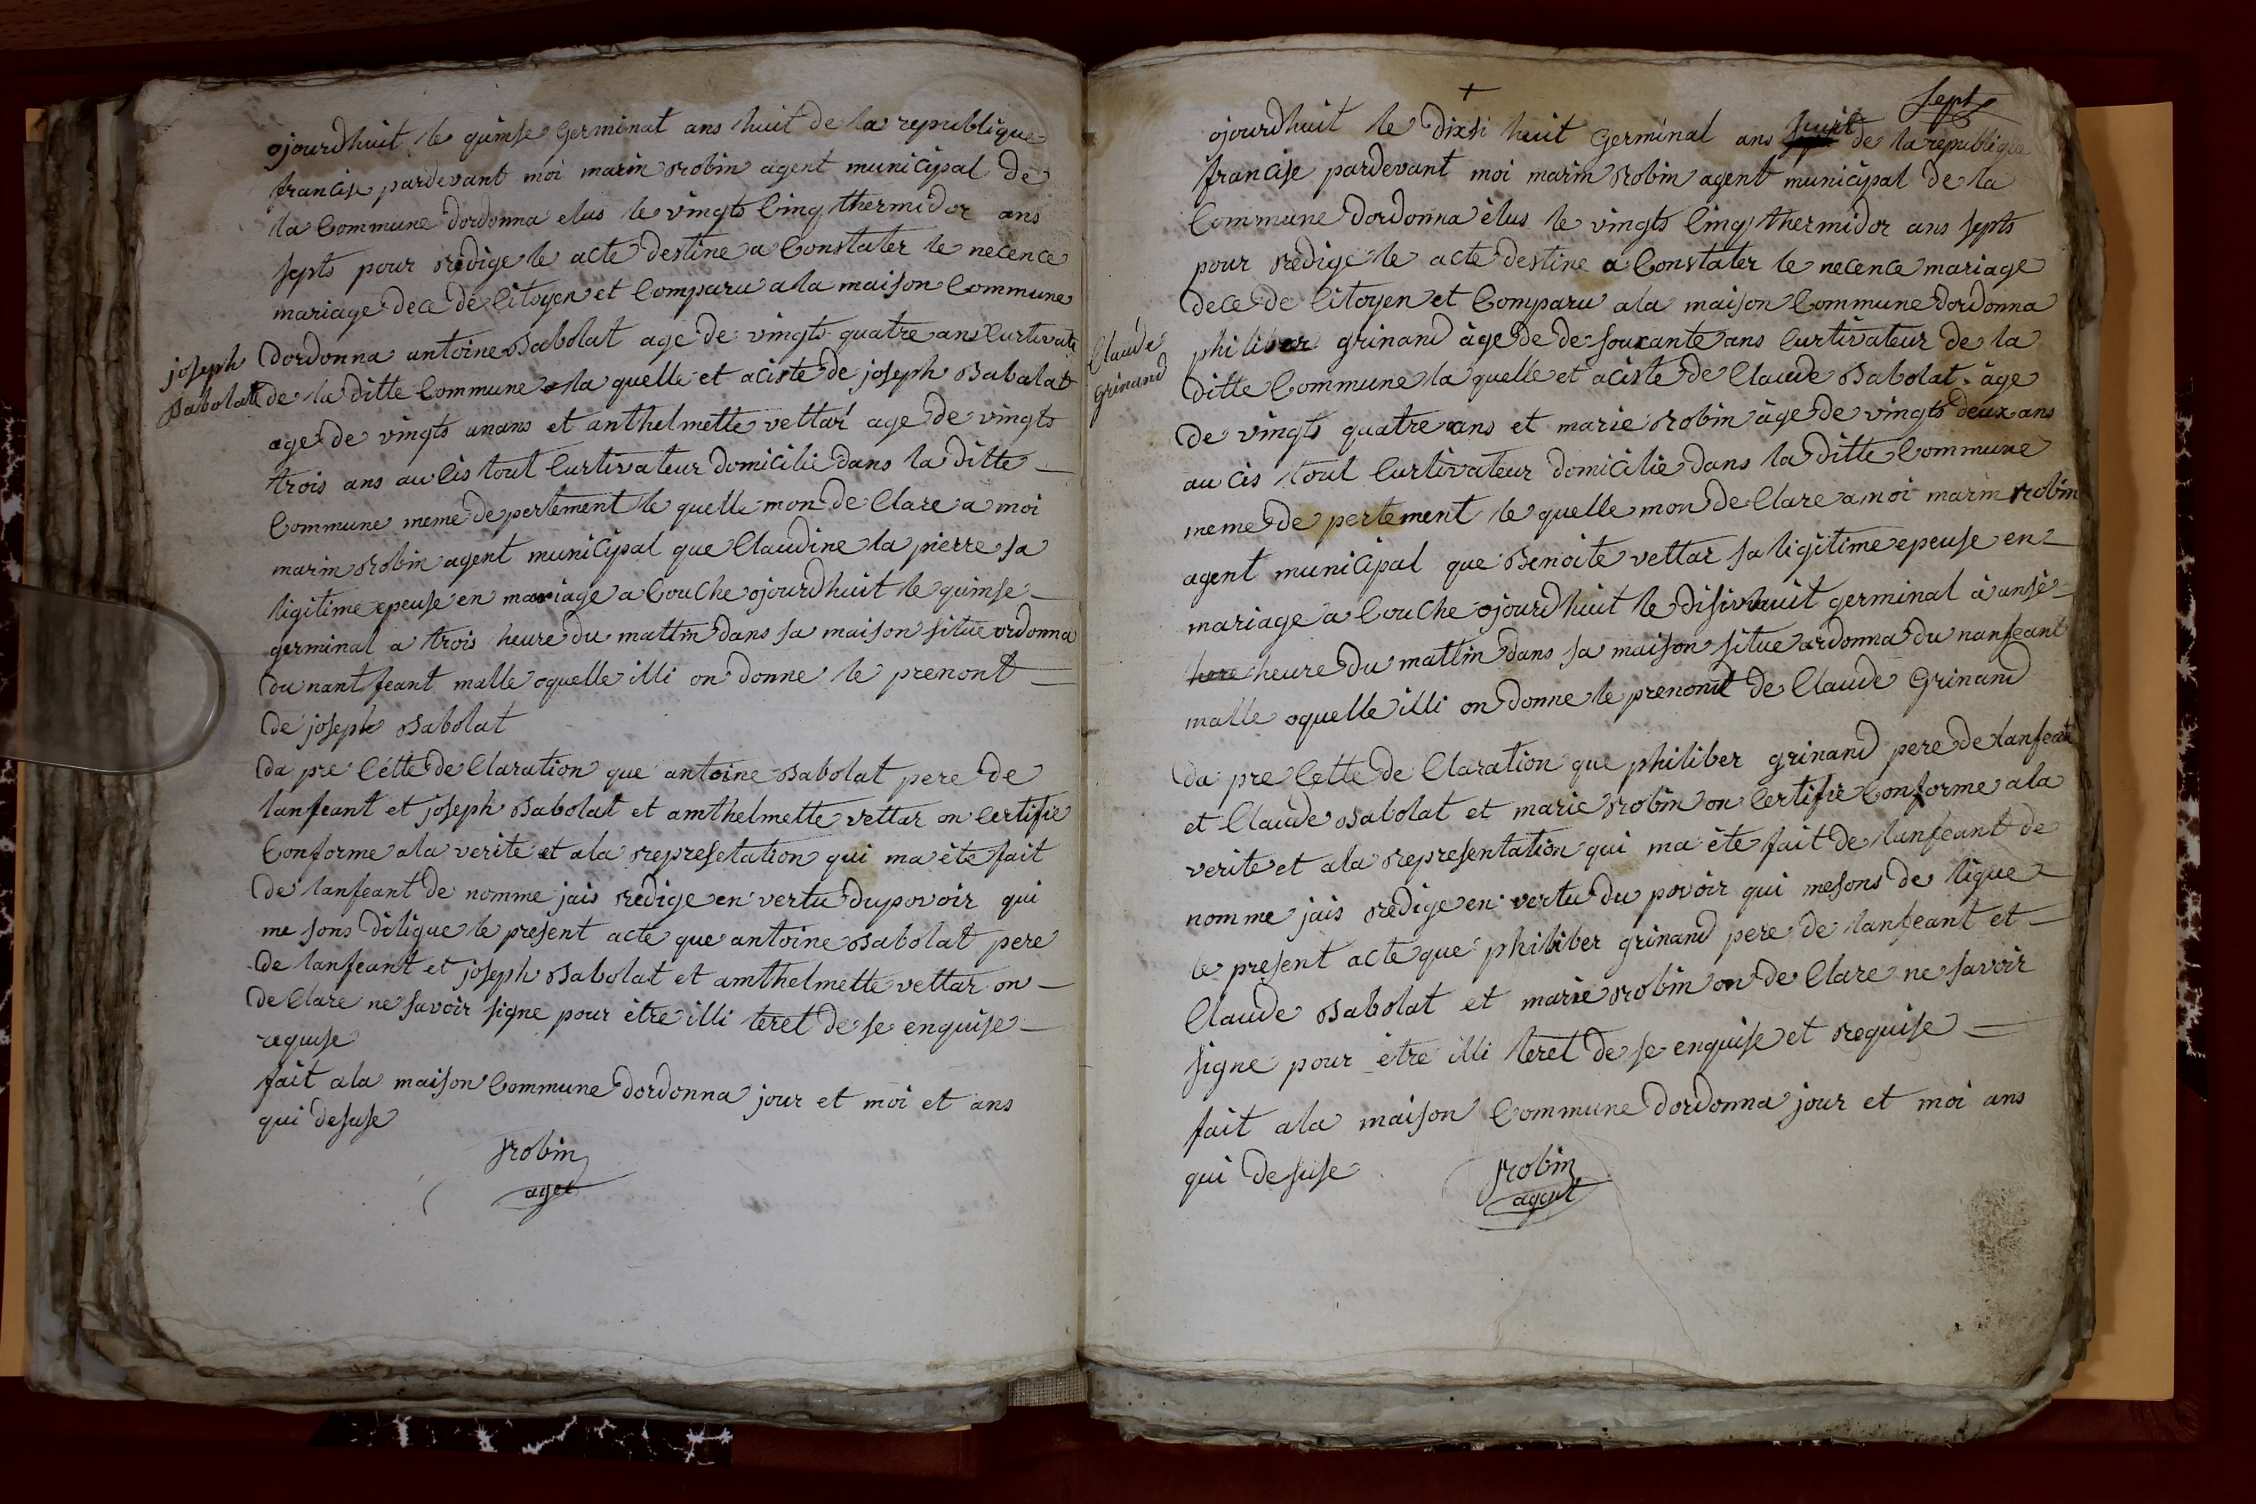 ojourdhuit le quinse Germinat ans huit de la republique
francise pardevant moi marin robin agent municipal de
la Commune dordonna elus le vingts Cinq thermidor ans
septs pour redige le acte destine a Constater le necence
mariage dece de Citoyen et Comparu a la maison Commune
joseph
Babolat
dordonna antoine Babolat age de vingts quatre ans Curtivate
de la ditte Commune la quelle et aciste de joseph Babalat
age de vingts unans et anthelmette vettar age de vingts
trois ans au Cis tout Curtivateur domicilie dans la ditte
Commune meme depertement le quelle mon de Clare a moi
marin robin agent municipal que Claudine la pierre sa
ligitime epeuse en mariage a Couche ojourdhuit le quinse
germinal a trois heure du mattin dans sa maison situe ordonna
du nant feant malle oquelle illi on donne le prenont
de joseph Babolat
da pre Cette de Claration que antoine Babolat pere de
lanfeant et joseph Babolat et amthelmette vettar on Certifie
Conforme ala verite et ala represetation qui ma ète fait
de lanfeant de nomme jais redige en vertu dupovoir qui
me sons diligue le present acte que antoine Babolat pere
de lanfeant et joseph Babolat et amthelmette vettar on
de Clare ne savoir signe pour être illi teret de se enquise
requise
fait ala maison Commune dordonna jour et moi et ans
qui desuse
robin
aget
sept
ojourdhuit le dixsi huit Germinal ans huit de la republique
francise pardevant moi marin robin agent municipal de la
Commune dordonna èlus le vingts Cinq thermidor ans septs
pour redige le acte destine a Constater le necence mariage
dece de Citoyen et Comparu ala maison Commune dordonna
Claude
Grinand
philiber grinand àge de de souxante ans Curtivateur de la
ditte Commune la quelle et aciste de Claude Babolat àge
de vingts quatre ans et marie robin àge de vingts deux ans
au Cis tout Curtivateur domicilie dans la ditte Commune
meme de pertement le quelle mon de Clare a moi marin robin
agent municipal que Benoite vettar sa ligitime epeuse en
mariage a Couche ojourdhuit le disivhuit germinal à ansè
here heure du mattin dans sa maison situe ardonna du nanfeant
malle oquelle illi on donne le prenomt de Claude Grinand
da pre Cette de Claration que philiber grinand pere de lanfeant
et Claude Babolat et marie robin on Certifie Conforme ala
verite et ala representation qui ma ète fait de lanfeant de
nomme jais redige en vertu du povoir qui mesons de ligue
le present acte que philiber grinand pere de lanfeant et
Claude Babolat et marie robin on de Clare ne savoir
signe pour être illi teret de se enquise et requise
fait ala maison Commune dordonna jour et moi ans
qui desuse
robin
agent